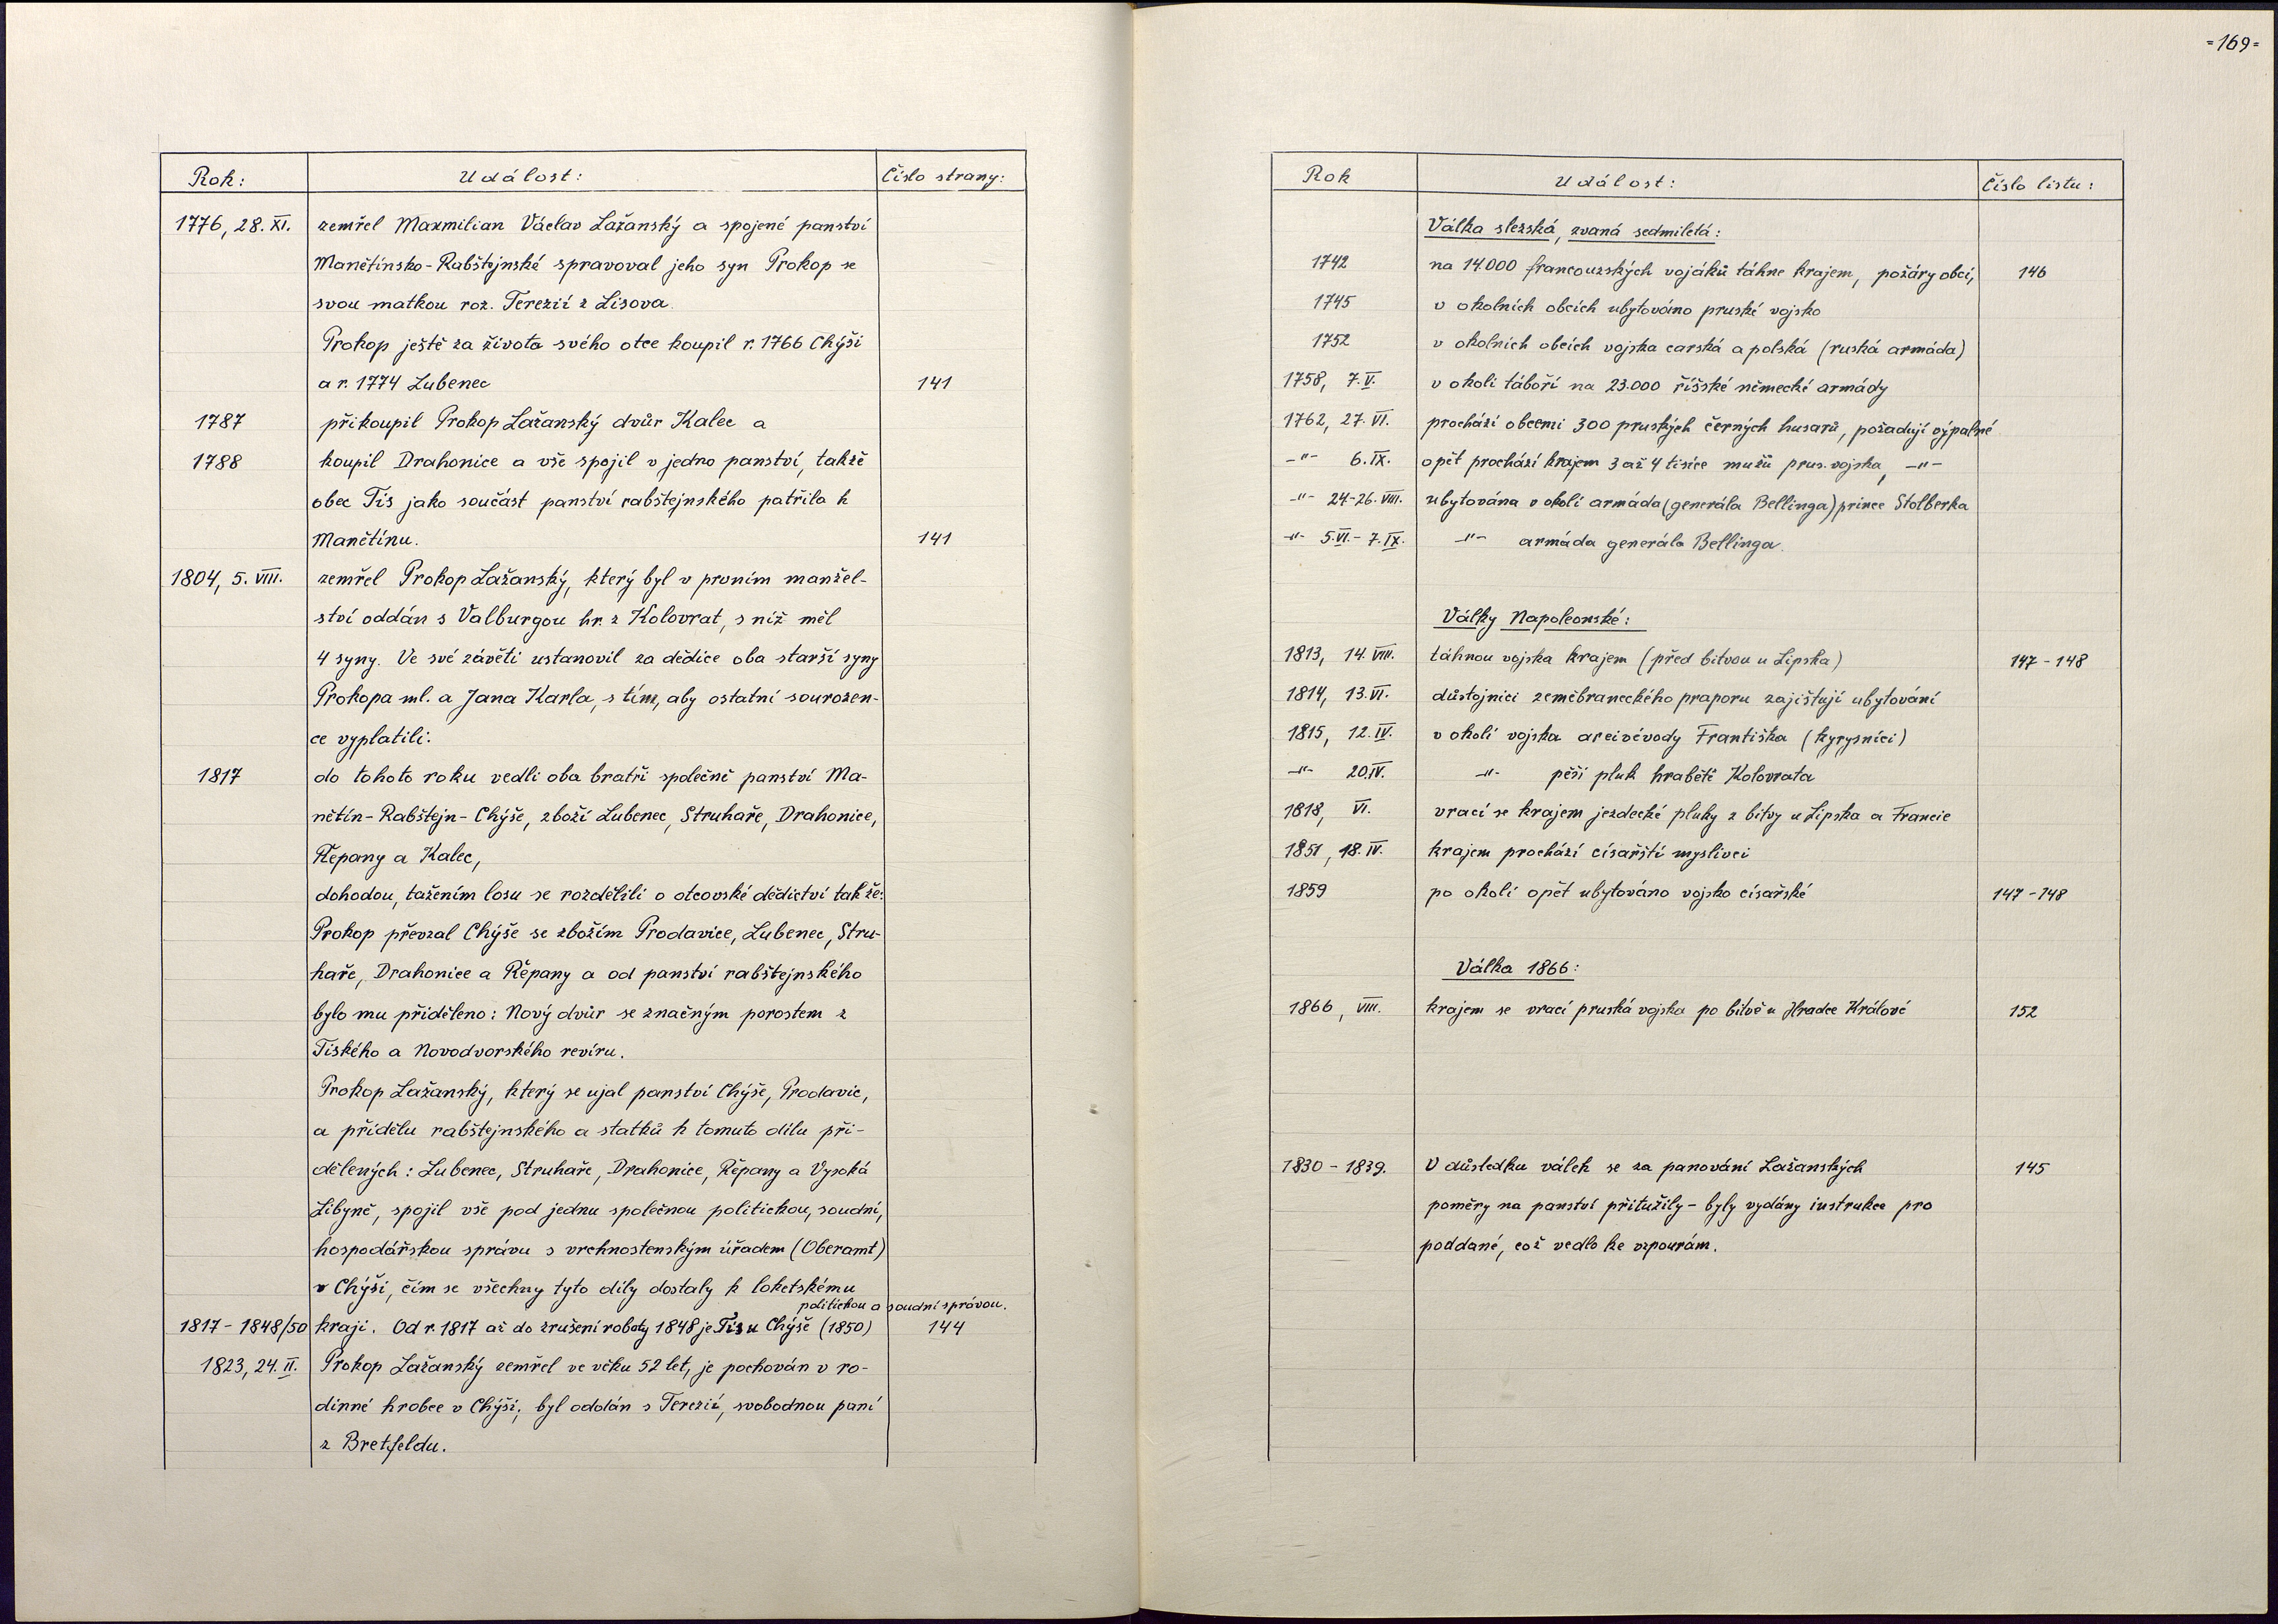 Rok: Událost: Číslo strany:
1776, 28. XI. zemřel Maxmilian Václav Lažanský a spojené panství
Manětínsko-Rabštejnské spravoval jeho syn Prokop se
svou matkou roz. Terezií z Lisova.
Prokop ještě za života svého otce koupil r. 1766 Chýši
a r. 1774 Lubenec 141
1787 přikoupil Prokop Lažanský dvůr Kalec a
1788 koupil Drahonice a vše spojil v jedno panství, takže
obec Tis jako součást panství rabštejnského patřila k
Manětínu. 141
1804, 5. VIII. zemřel Prokop Lažanský, který byl v prvním manžel-
ství oddán s Valburgou hr. z Kolovrat, s níž měl
4 syny. Ve své závěti ustanovil za dědice oba starší syny
Prokopa ml. a Jana Karla, s tím, aby ostatní sourozen-
ce vyplatili.
1817 do tohoto roku vedli oba bratři společně panství Ma-
nětín-Rabštejn-Chýše, zboží Lubenec, Struhaře, Drahonice,
Řepany a Kalec,
dohodou, tažením losu se rozdělili o otcovské dědictví takže:
Prokop převzal Chýše se zbožím Prodavice, Lubenec, Stru-
haře, Drahonice a Řepany a od panství rabštejnského
bylo mu přiděleno: Nový dvůr se značným porostem z
Tiského a Novodvorského revíru.
Prokop Lažanský, který se ujal panství Chýše, Prodavic,
a přídělu rabštejnského a statků k tomuto dílu při-
dělených: Lubenec, Struhaře, Drahonice, Řepany a Vysoká
Libyně, spojil vše pod jednu společnou politickou, soudní,
hospodářskou správu s vrchnostenským úřadem (Oberamt)
v Chýši, čím se všechny tyto díly dostaly k loketskému
politickou a soudní správou.
1817-1848/50 kraji. Od r. 1817 až do zrušení roboty 1848 je Tis u Chýše (1850) 144
1823, 24. II. Prokop Lažanský zemřel ve věku 52 let, je pochován v ro-
dinné hrobce v Chýši; byl oddán s Terezií, svobodnou paní
z Bretfeldu.
=169=
Rok Událost: Číslo listu:
Válka slezská, zvaná sedmiletá:
1742 na 14.000 francouzských vojáků táhne krajem, požáry obcí, 146
1745 v okolních obcích ubytováno pruské vojsko
1752 v okolních obcích vojska carská a polská (ruská armáda)
1758, 7. V. v okolí táboří na 23.000 říšské německé armády
1762, 27. VI. prochází obcemi 300 pruských černých husarů, požadují výpalné
-"- 6. IX. opět prochází krajem 3 až 4 tisíce mužů prus. vojska, -"-
-"- 24-26. VIII. ubytována v okolí armáda (generála Bellinga) prince Stolberka
-"- 5. VI. - 7. IX. -"- armáda generála Bellinga.
Války Napoleonské:
1813, 14. VIII. táhnou vojska krajem (před bitvou u Lipska) 147-148
1814, 13. VI. důstojníci zeměbraneckého praporu zajištují ubytování
1815, 12. IV. v okolí vojska arcivévody Františka (kyrysníci)
-"- 20. IV. -"- pěší pluk hraběte Kolovrata
1818, VI. vrací se krajem jezdecké pluky z bitvy u Lipska a Francie
1851, 18. IV. krajem prochází císařští myslivci
1859 po okolí opět ubytováno vojsko císařské 147-148
Válka 1866:
1866, VIII. krajem se vrací pruská vojska po bitvě u Hradce Králové 152
1830-1839. V důsledku válek se za panování Lažanských 145
poměry na panství přitužily - byly vydány instrukce pro
poddané, což vedlo ke vzpourám.